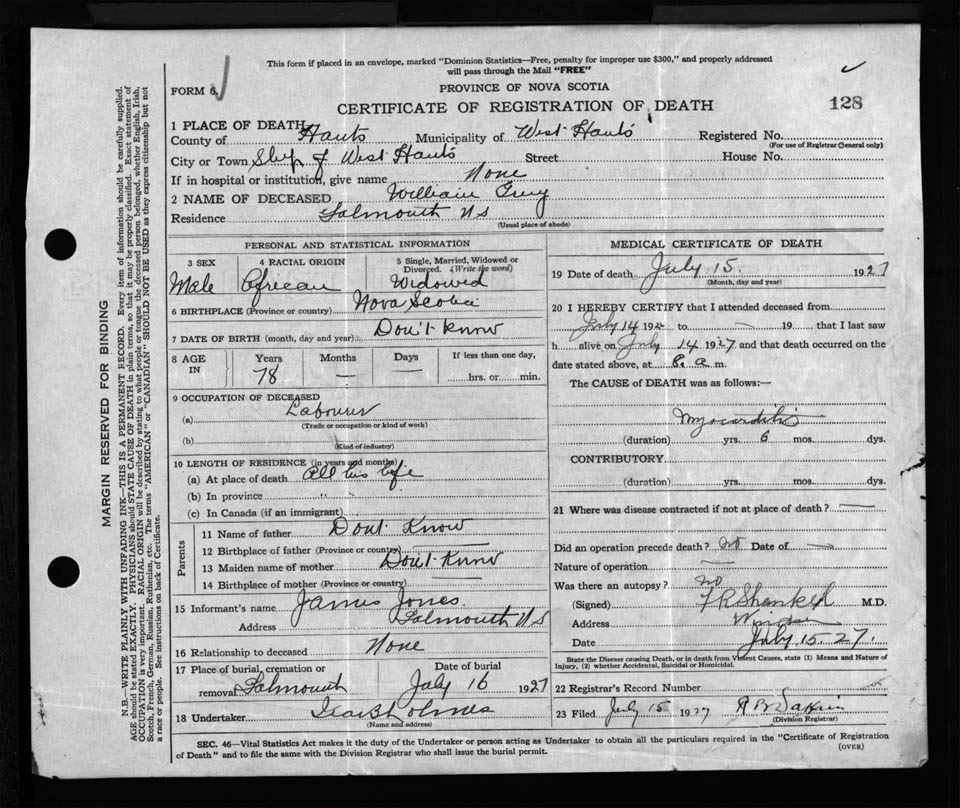 This form if placed in an envelope, marked "Dominion Statistics—Free, penalty for improper use $300," and properly addressed
will pass through the Mail "FREE"
FORM 6.
PROVINCE OF NOVA SCOTIA
CERTIFICATE OF REGISTRATION OF DEATH
128
1 PLACE OF DEATH
County of Hants Municipality of West Hants Registered No.
(For use of Registrar General only)
City or Town of West Hants Street House No.
If in hospital or institution, give name None
2 NAME OF DECEASED William
Residence Falmouth NS
(Usual place of abode)
PERSONAL AND STATISTICAL INFORMATION
3 SEX 4 RACIAL ORIGIN 5 Single, Married, Widowed or
Divorced. (Write the word)
Male African Widowed
6 BIRTHPLACE (Province or country) Nova Scotia
7 DATE OF BIRTH (month, day and year) Don't know
8 AGE IN Years Months Days If less than one day,
78 — — hrs. or min.
9 OCCUPATION OF DECEASED
(a) Labourer
(Trade or occupation or kind of work)
(b)
(Kind of industry)
10 LENGTH OF RESIDENCE (in years and months)
(a) At place of death all his life
(b) In province "
(c) In Canada (if an immigrant)
Parents
11 Name of father Dont Know
12 Birthplace of father (Province or country) —
13 Maiden name of mother Don't Know
14 Birthplace of mother (Province or country) —
15 Informant's name James Jones
Address Falmouth NS
16 Relationship to deceased None
17 Place of burial, cremation or Date of burial
removal Falmouth July 16 1927
18 Undertaker Holmes
(Name and address)
MEDICAL CERTIFICATE OF DEATH
19 Date of death July 15 1927
(Month, day and year)
20 I HEREBY CERTIFY that I attended deceased from
July 14 192 to — 19 that I last saw
h alive on July 14 1927 and that death occurred on the
date stated above, at 8. a m.
The CAUSE of DEATH was as follows:—
Myocarditis
(duration) yrs. 6 mos. dys.
CONTRIBUTORY
(duration) yrs. mos. dys.
21 Where was disease contracted if not at place of death? —
Did an operation precede death? no Date of —
Nature of operation —
Was there an autopsy? no
(Signed) M.D.
Address Windsor
Date July 15-27.
State the Disease causing Death, or in death from Violent Causes, state (1) Means and Nature of
Injury, (2) whether Accidental, Suicidal or Homicidal.
22 Registrar's Record Number
23 Filed July 15 1927
(Division Registrar)
SEC. 46—Vital Statistics Act makes it the duty of the Undertaker or person acting as Undertaker to obtain all the particulars required in the "Certificate of Registration
of Death" and to file the same with the Division Registrar who shall issue the burial permit.
(OVER)
MARGIN RESERVED FOR BINDING
N.B.—WRITE PLAINLY WITH UNFADING INK—THIS IS A PERMANENT RECORD. Every item of information should be carefully supplied.
AGE should be stated EXACTLY. PHYSICIANS should STATE CAUSE OF DEATH in plain terms, so that it may be properly classified. Exact statement of
OCCUPATION is very important. RACIAL ORIGIN will be described by stating to what people or tongue the deceased person belonged, whether English, Irish,
Scotch, French, German, Russian, Ruthenian, etc. The terms "AMERICAN" or "CANADIAN" SHOULD NOT BE USED as they express citizenship but not
a race or people. See instructions on back of Certificate.